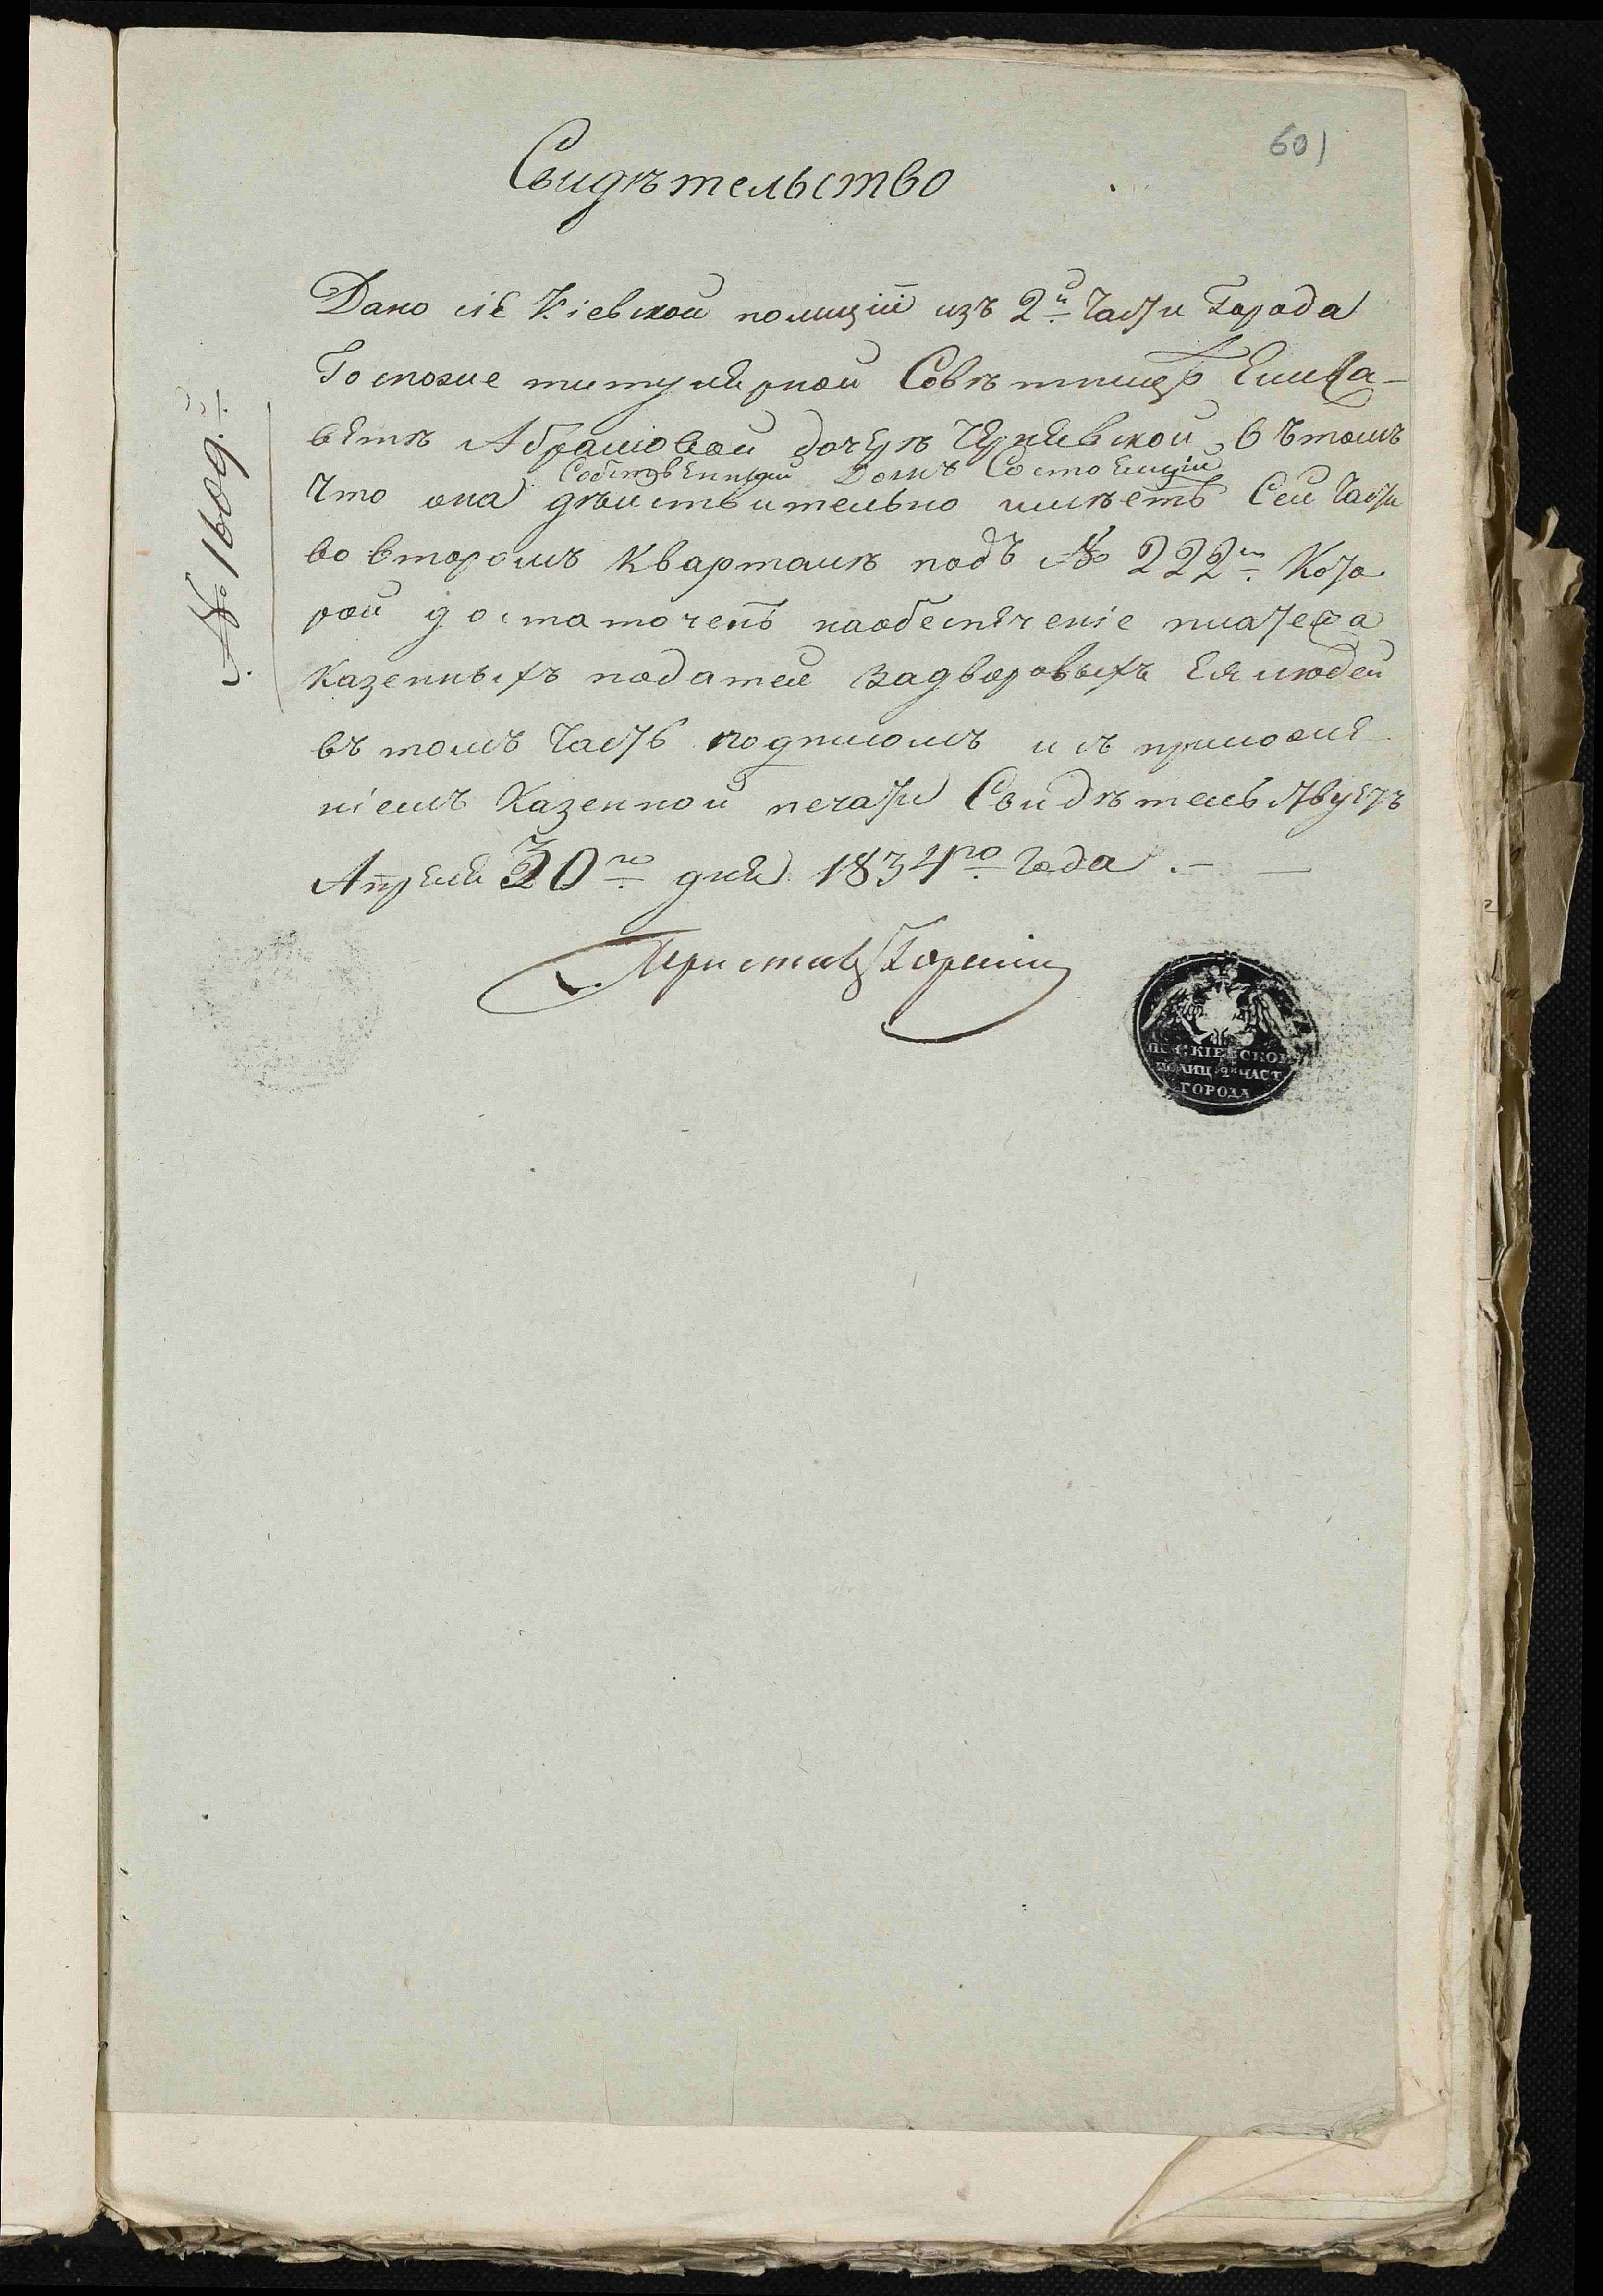 601
Свидѣтельство
Дано сіе Кіевской полиціи изъ 2й части Города
Госпоже титулярной Совѣтницѣ Елиза-
ветѣ Абрамовой дочерѣ въ томъ
Собственный Домъ Состоящій
что она дѣйствительно имѣетъ Сей части
во второмъ Кварталѣ подъ № 222м Кото
рой достаточенъ наобеспечение платежа
Казенныхъ податей задворовыхъ Ея людей
въ томъ Часть подписомъ и съ приложе
ніемъ Казенной печати Свидѣтельствуетъ
Апреля 30го дня 1834го Года
Приставъ
№ 1609й
КІЕВСКОЙ
ПОЛИЦ 2й ЧАСТ
ГОРОДА